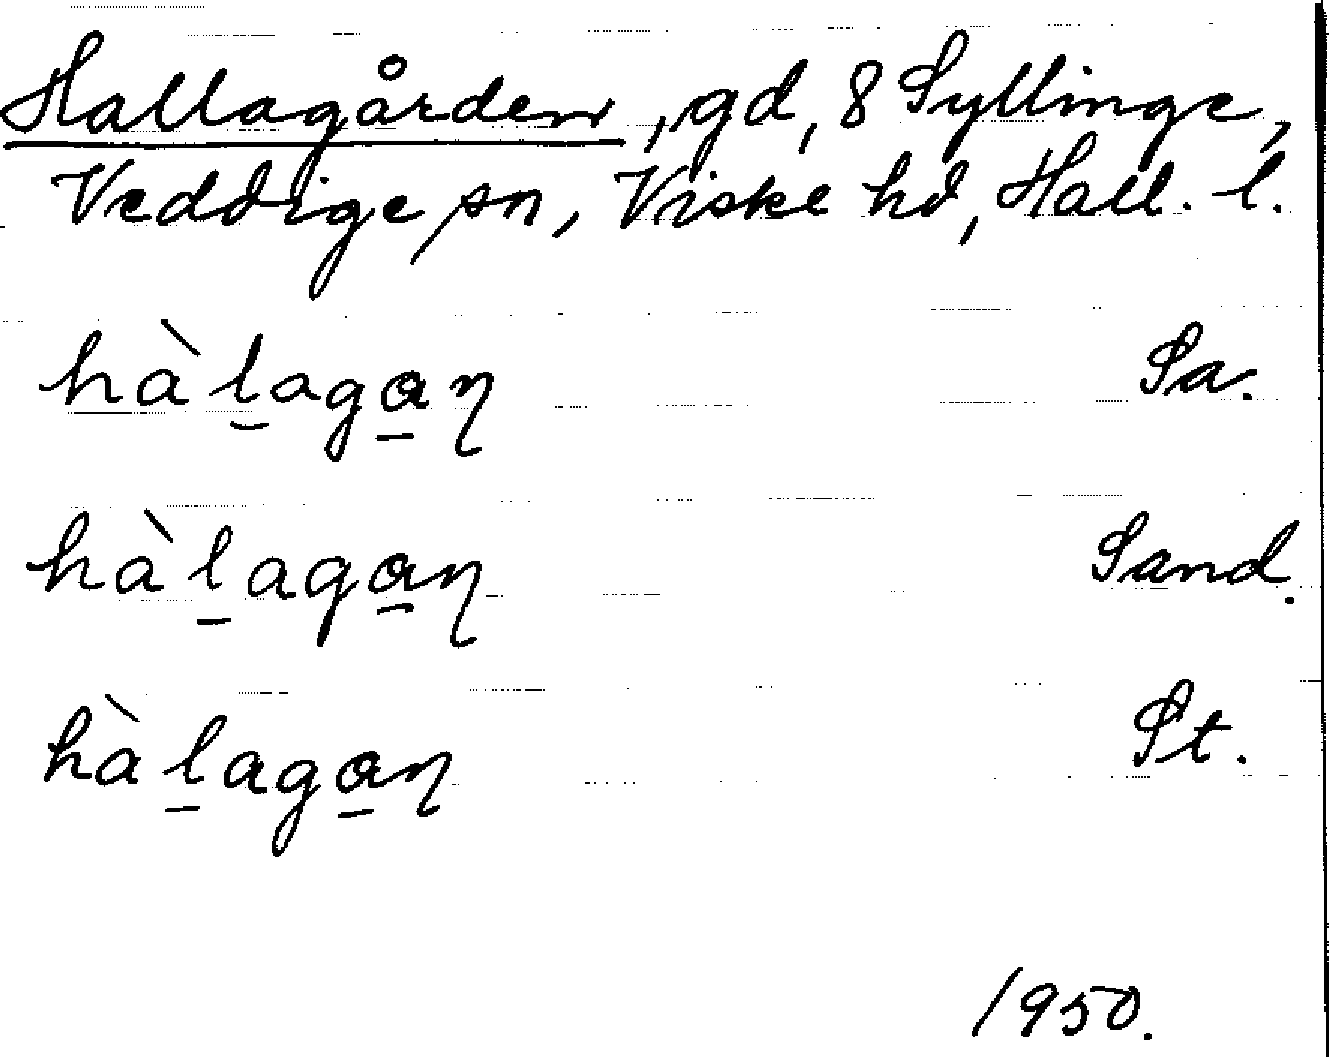 Hallagården, gd, 8 Syllinge,
Veddige sn, Viske hd, Hall. l.
hàl̲aga̲ɳ Sa.
hàl̲aga̲ɳ Sand.
hàl̲aga̲ɳ St.
1950.